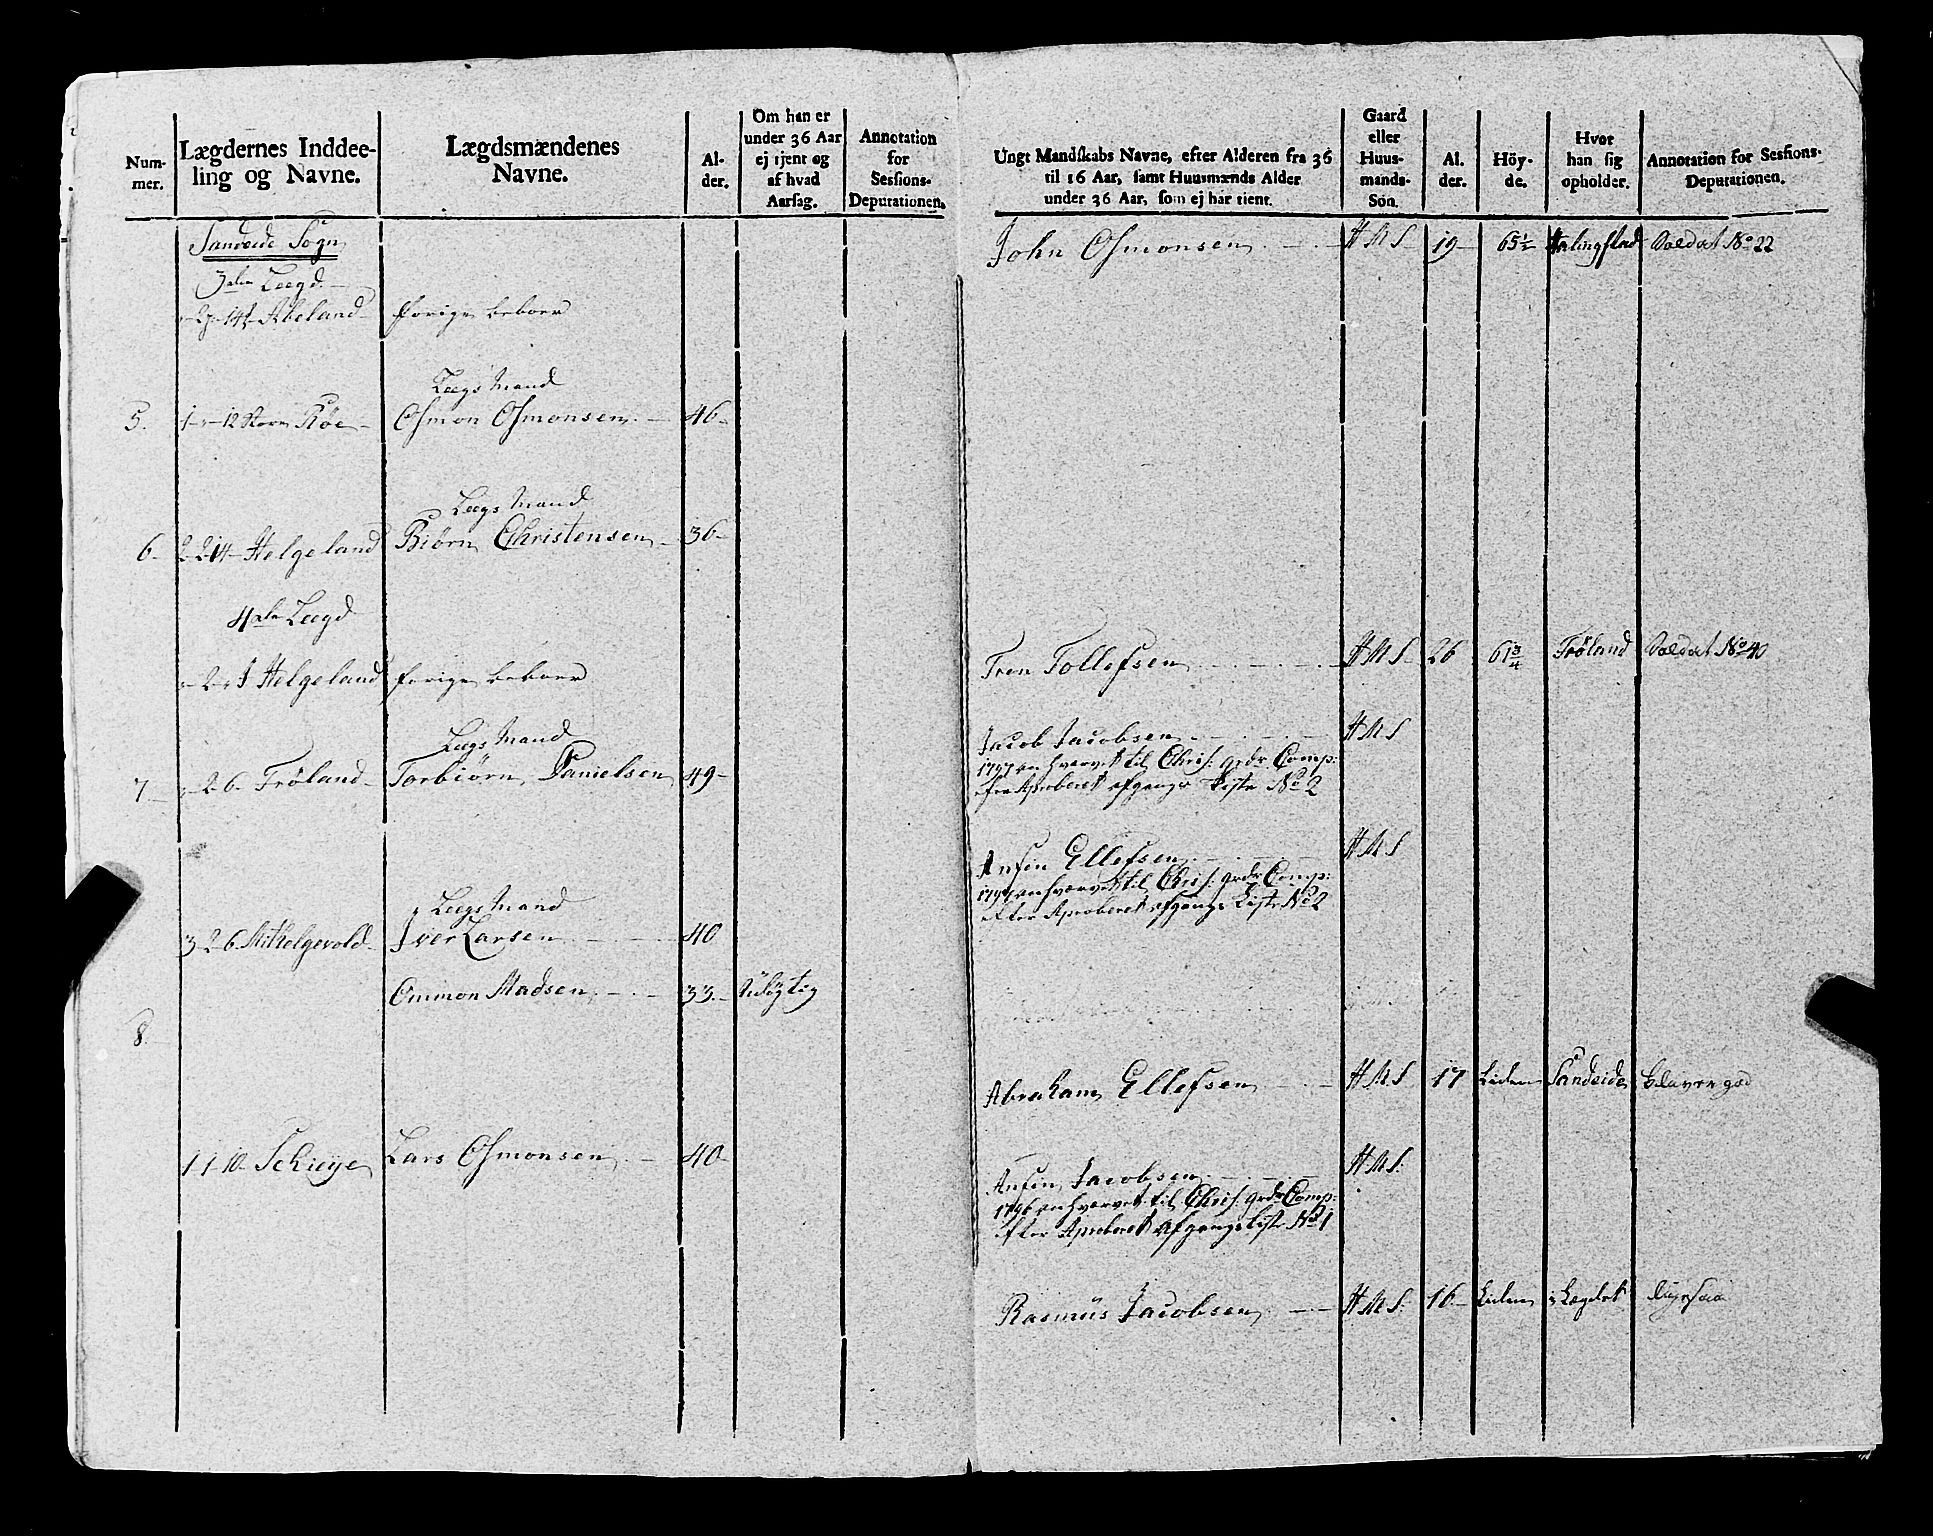 Num-
mer.
Lægdernes Inddee-
ling og Navne.
Lægdsmændenes
Navne.
Al-
der.
Om han er
under 36 Aar
ej tjent og
af hvad
Aarsag.
Annotation
for
Sessions-
Deputationen.
Sandeide Sogn
3die Lægd
14 Abeland forige beboer
Lægs Mand
5. 1 - 12 Store Röe Osmon Osmonsen 46
Lægs Mand
6 2 2 14 Helgeland Biörn Christensen 36
4de Lægd
2 Helgeland forige beboer
Lægs Mand
7 2 6 Fröland Torbiörn Danielsen 49
Lægs Mand
3 2 6 Mithelgevold Iver Larsen 40
Ommon Madsen 33 Udögtig
8.
1 1 10 Schieye Lars Osmonsen 40
Ungt Mandskabs Navne, efter Alderen fra 36
til 16 Aar, samt Huusmænds Alder
under 36 Aar, som ej har tient.
Gaard
eller
Huus-
mands-
Sön.
Al.
der.
Höy-
de.
Hvor
han sig
opholder.
Annotation for Sessions-
Deputationen.
John Osmonsen H M S 19 65 1/2 Soldat No 22
Tron Tollefsen H M S 26 61 3/4 Fröland Soldat No 40
Jacob Jacobsen H M S
1797 anhvervet til Chris. grdr Comp:
Aproberet afgangs Liste No 2
Ansin Ellefsen H M S
1797 anhvervet til Chris. grdr Comp:
efter Aproberet afgangs Liste No 2
Abraham Ellefsen H M S 17 Liden Sandeide
Ansin Jacobsen H M S
1796 anhvervet til Chris. grdr Comp:
efter Aproberet afgangs Liste No 1
Rasmus Jacobsen H M S 16 Liden i Lægdet